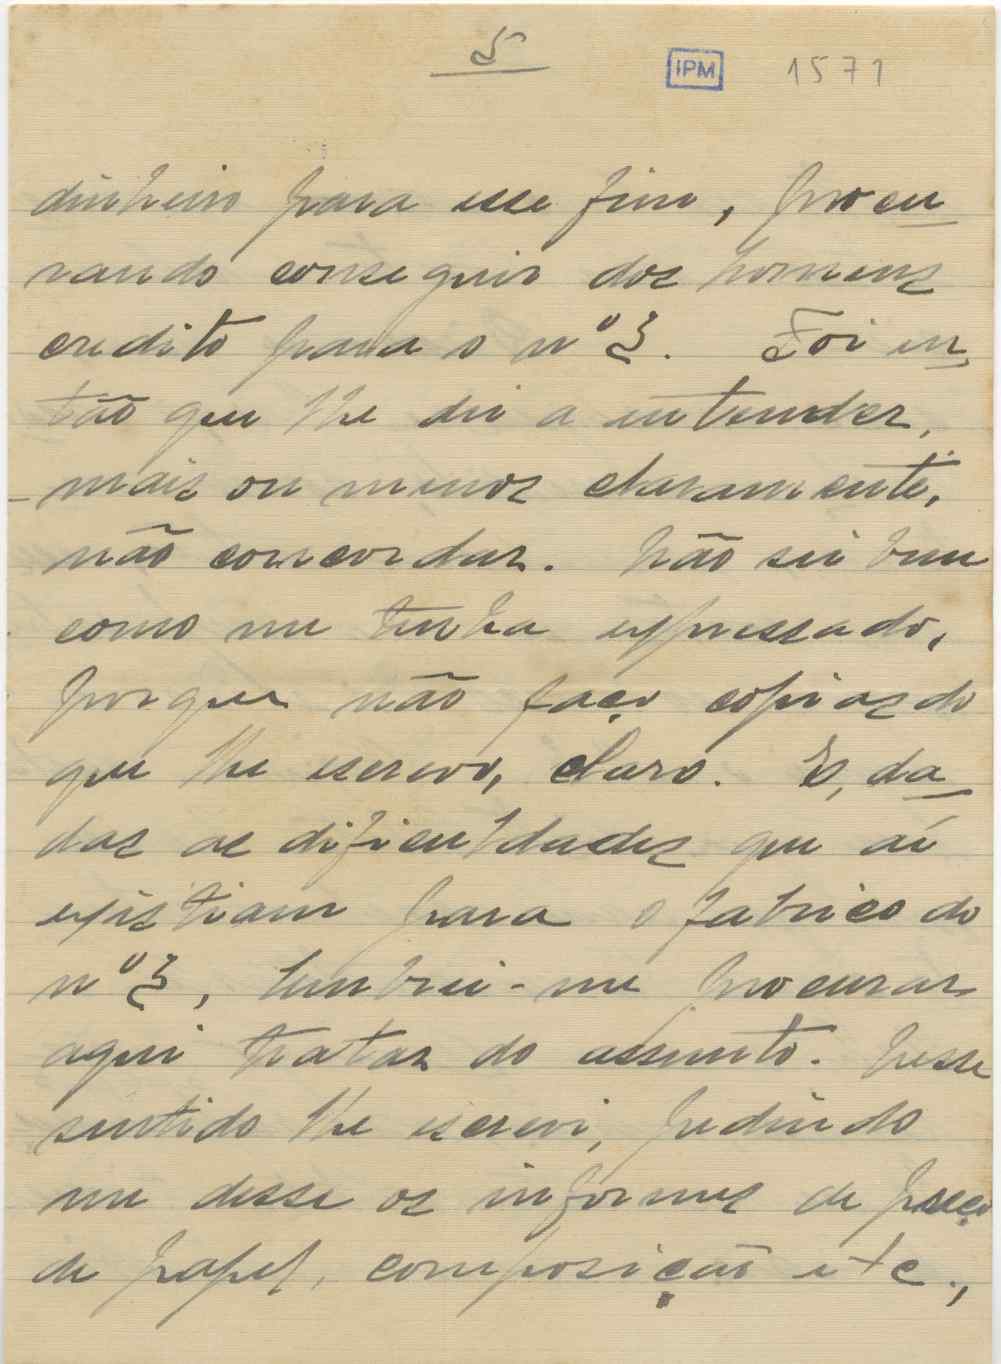 5
IPM 1571
dinheiro para esse fim, procu
rando conseguir dos homens
credito para o nº 3. Foi en
tão que lhe dei a entender,
mais ou menos claramente,
não concordar. Não sei bem
como me tenha expressado,
porque não faço copias do
que lhe escrevo, claro. E, da
das as dificuldades que aí
existiam para o fabrico do
nº 3, lembrei-me procurar
aqui tratar do assunto. Nesse
sentido lhe escrevi, pedindo
me desse os informes de preço
de papel, composição etc.,